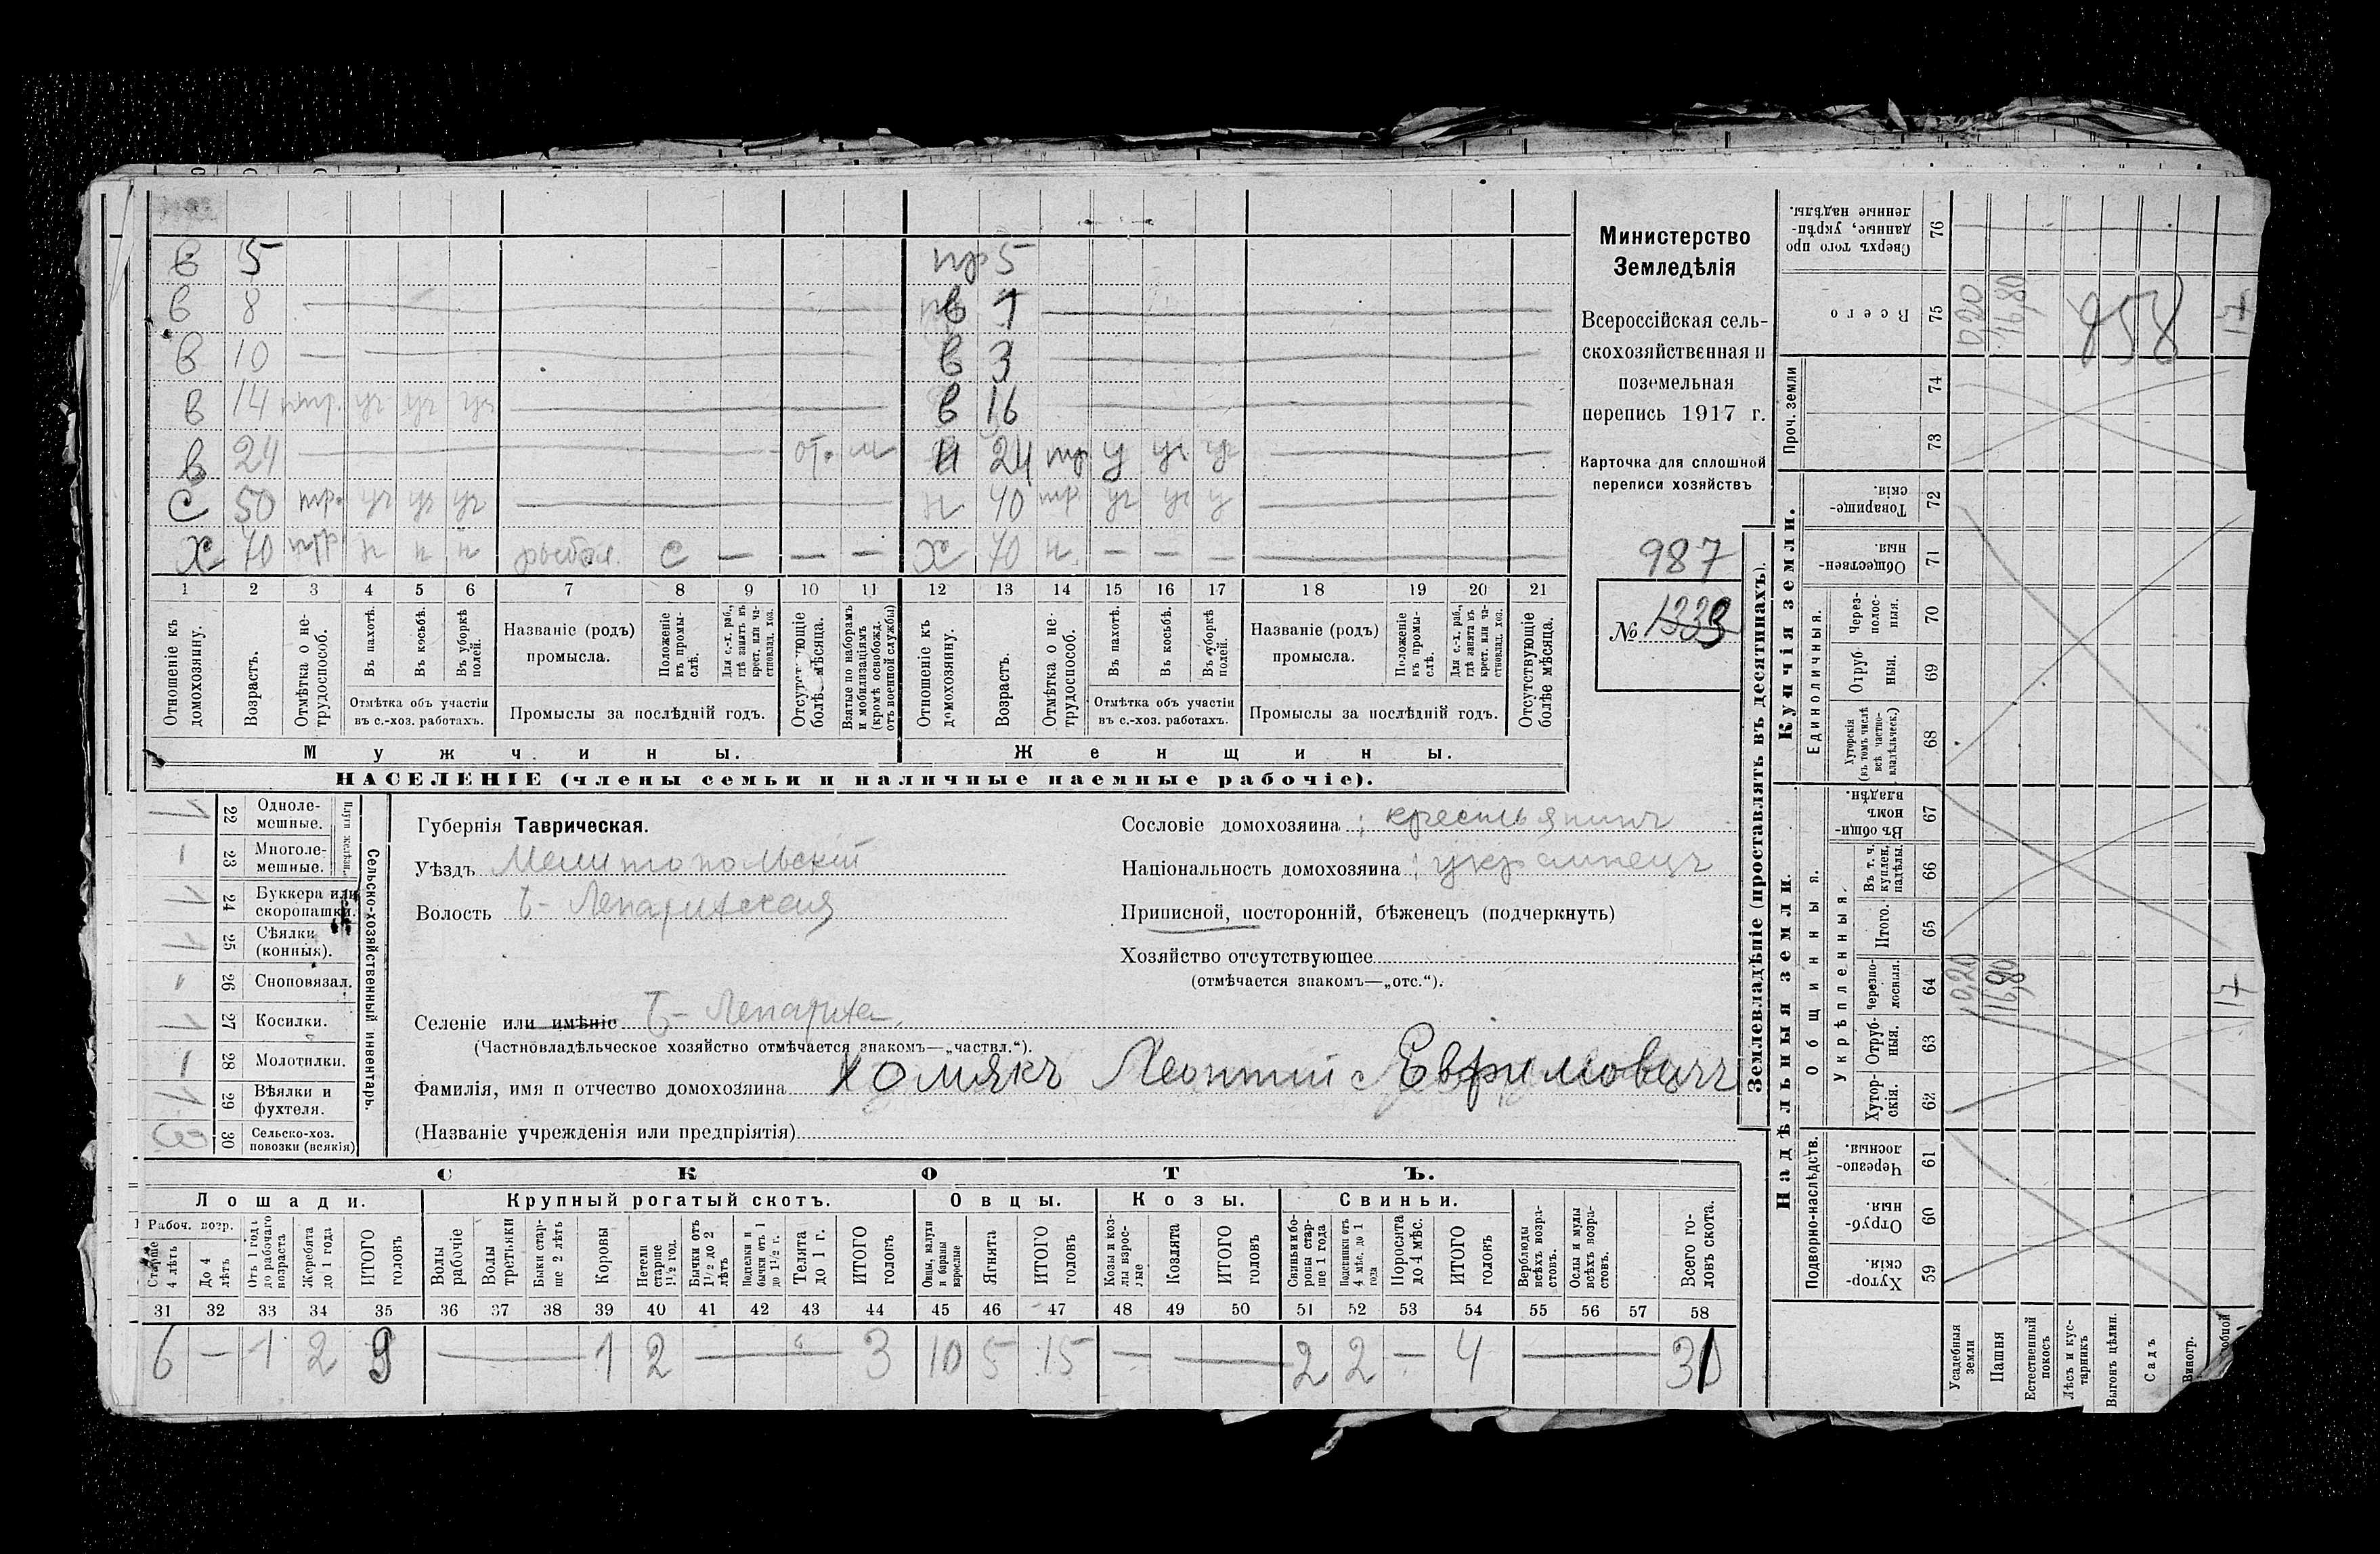 в 5 пр 5
в 8 — в 1 —
в 10 — в 3 —
в 14 ппр. уч уч уч — в 16 —
в 24 — от. м н 24 пр у уч уч —
с 50 пр. уч уч уч — н 40 пр уч уч у —
х 70 ппр н н н рыбол. с — — — х 70 н. — — — —
1 2 3 4 5 6 7 8 9 10 11 12 13 14 15 16 17 18 19 20 21
Отношеніе къ домохозяину.
Возрастъ.
Отмѣтка о нетрудоспособ.
Въ пахотѣ.
Въ косьбѣ.
Въ уборкѣ полей.
Отмѣтка объ участіи въ с.-хоз. работахъ.
Названіе (родъ) промысла.
Положеніе въ промыслѣ.
Для с.-х. раб., гдѣ занятъ въ крест. или частновлад. хоз.
Промыслы за послѣдній годъ.
Отсутствующіе болѣе мѣсяца.
Взятые по наборамъ и мобилизаціямъ (кромѣ освобожд. отъ военной службы)
Отношеніе къ домохозяину.
Возрастъ.
Отмѣтка о нетрудоспособ.
Въ пахотѣ.
Въ косьбѣ.
Въ уборкѣ полей.
Отмѣтка объ участіи въ с.-хоз. работахъ.
Названіе (родъ) промысла.
Положеніе въ промыслѣ.
Для с.-х. раб., гдѣ занята въ крест. или частновлад. хоз.
Промыслы за послѣдній годъ.
Отсутствующіе болѣе мѣсяца.
Мужчины.
Женщины.
НАСЕЛЕНІЕ (члены семьи и наличные наемные рабочіе).
Министерство
Земледѣлія
Всероссійская сель-
скохозяйственная и
поземельная
перепись 1917 г.
Карточка для сплошной
переписи хозяйствъ
987
№ 1333
Сельско-хозяйственный инвентарь.
Плуги желѣзн.
22 Однолемешные. 1
23 Многолемешные. —
24 Буккера или скоропашки. 1
25 Сѣялки (конныя). 1
26 Сноповязал. "
27 Косилки. 1
28 Молотилки. —
29 Вѣялки и фухтеля. 1
30 Сельско-хоз. повозки (всякія) 3
Губернія Таврическая.
Уѣздъ Мелитопольскій
Волость Б- Лепатихская
Селеніе или имѣніе Б- Лепатиха
(Частновладѣльческое хозяйство отмѣчается знакомъ—„частвл.“).
Фамилія, имя и отчество домохозяина Хомякъ Леонтій Евфимовичъ
(Названіе учрежденія или предпріятія)
Сословіе домохозяина: крестьянинъ
Національность домохозяина: украинецъ
Приписной, посторонній, бѣженецъ (подчеркнуть)
Хозяйство отсутствующее
(отмѣчается знакомъ—„отс.“).
СКОТЪ.
Лошади. Крупный рогатый скотъ. Овцы. Козы. Свиньи.
Рабоч. возр.
Старше 4 лѣтъ
До 4 лѣтъ
Отъ 1 года до рабочаго возраста
Жеребята до 1 года
ИТОГО головъ
Волы рабочіе
Волы третьяки
Быки старше 2 лѣтъ
Коровы
Нетели старше 1½ год.
Бычки отъ 1½ до 2 лѣтъ
Подтелки и бычки отъ 1 до 1½ г.
Телята до 1 г.
ИТОГО головъ
Овцы, валухи и бараны взрослые
Ягнята
ИТОГО головъ
Козы и козлы взрослые
Козлята
ИТОГО головъ
Свиньи и боровы старше 1 года
Подсвинки отъ 4 мѣс. до 1 года
Поросята до 4 мѣс.
ИТОГО головъ
Верблюды всѣхъ возрастовъ.
Ослы и мулы всѣхъ возрастовъ.
Всего головъ скота.
31 32 33 34 35 36 37 38 39 40 41 42 43 44 45 46 47 48 49 50 51 52 53 54 55 56 57 58
6 — 1 2 9 — 1 2 — 3 10 5 15 — — 2 2 — 4 — 31
Землевладѣніе (проставлять въ десятинахъ).
Надѣльныя земли.
Купчія земли.
Проч. земли
Подворно-наслѣдств.
Общинныя.
Укрѣпленныя.
Единоличныя.
59 Хуторскія.
60 Отрубныя.
61 Черезполосныя.
62 Хуторскія.
63 Отрубныя.
64 Черезполосныя.
65 Итого.
66 Въ т. ч. куплен. надѣлы.
67 Въ общинномъ владѣн.
68 Хуторскія (въ томъ числѣ всѣ частновладѣльческ.)
69 Отрубныя.
70 Черезполосныя.
71 Общественныя.
72 Товарищескія.
73
74
75 Всего
76 Сверхъ того проданные, укрѣпленные надѣлы.
0,20 16,80 17
0,20 16,80 17
958
Усадебныя земли
Пашня
Естественный покосъ
Лѣсъ и кустарникъ
Выгонъ цѣлин.
Садъ
Виногр.